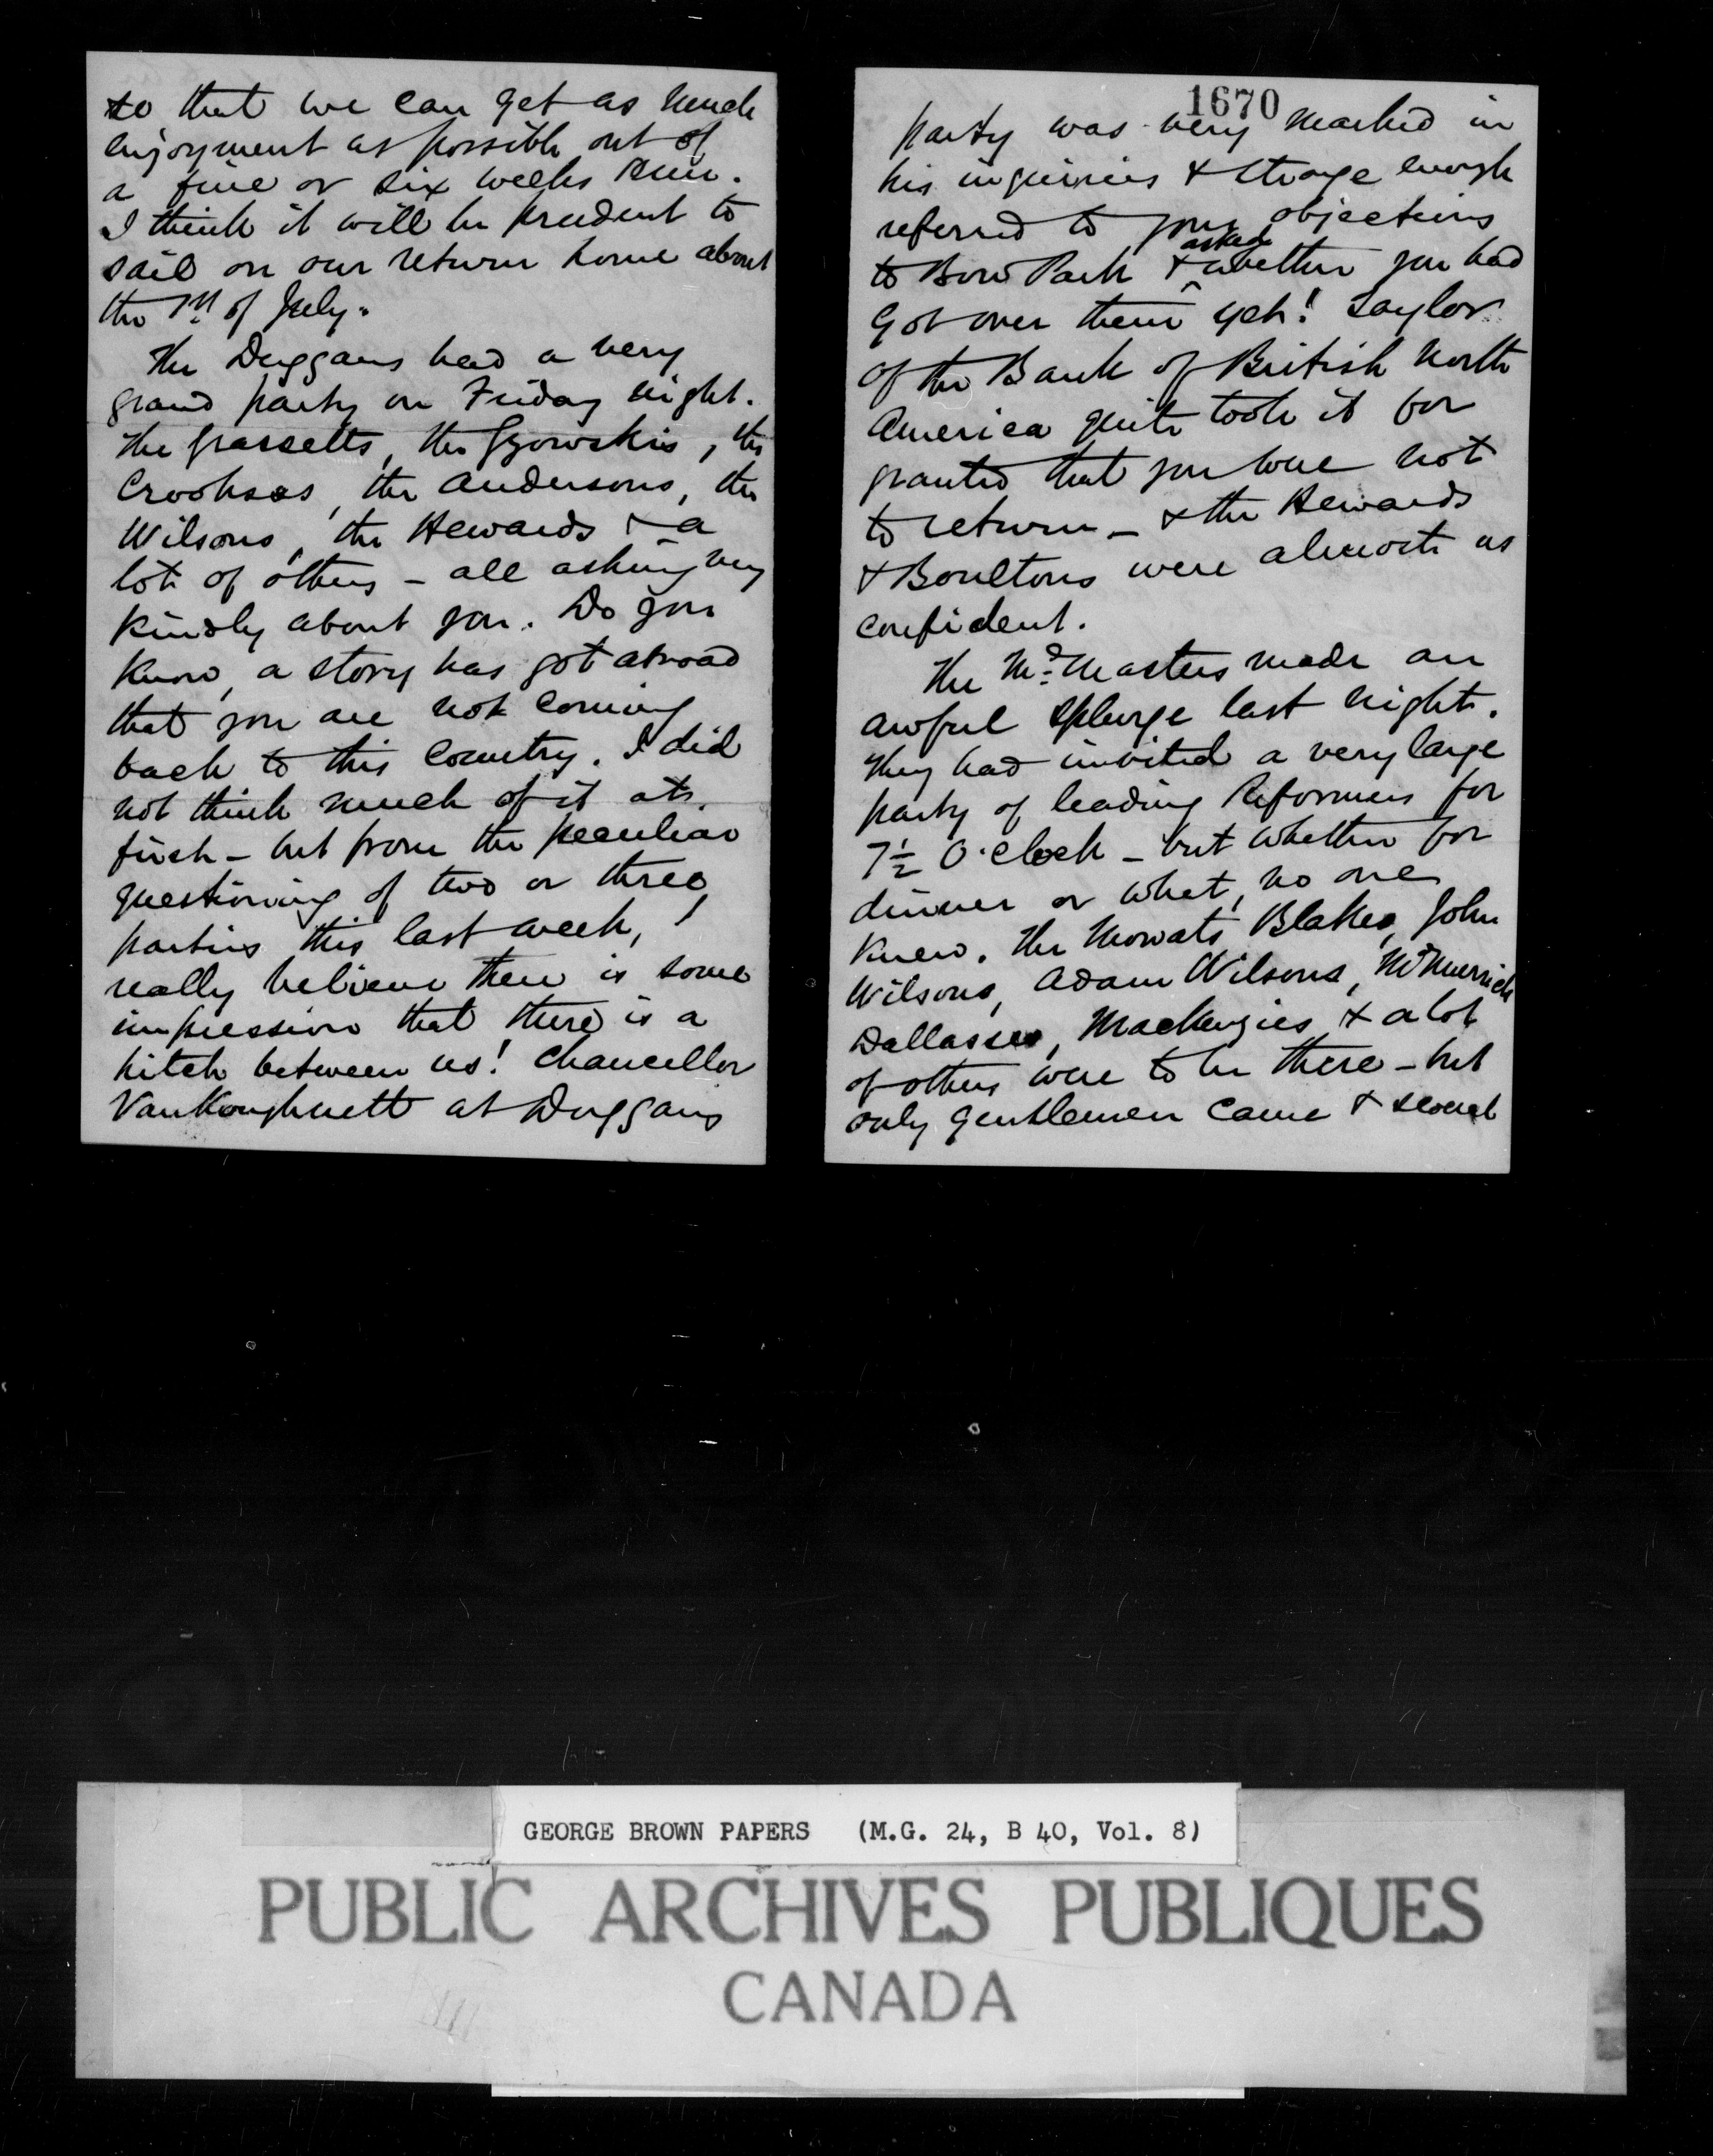 so that we can get as much
enjoyment as possible out of
a five or six weeks run.
I think it will be prudent to
sail on our return home about
the 1st of July.
The Duggans had a very
grand party on Friday night.
The Grassetts, the Gzowskis, the
Crookses, the Andersons, the
Wilsons, the Hewards & a
lot of others - all asking very
kindly about you. Do you
know, a story has got abroad
that you are not coming
back to this Country. I did
not think much of it at
first - but from the peculiar
questioning of two or three
parties this last week, I
really believe there is some
impression that there is a
hitch between us! Chancellor
VanKoughnett at Duggans
1670
party was very marked in
his inquiries & strange enough
referred to your objections
to Bow Park & asked whether you had
got over them yet! Taylor
of the Bank of British North
America quite took it for
granted that you were not
to return - & the Hewards
& Boultons were almost as
confident.
The McMasters made an
awful splurge last night.
They had invited a very large
party of leading Reformers for
7½ O'clock - but whether for
dinner or what, no one
knew. The Mowats, Blakes, John
Wilsons, Adam Wilsons, McMurrich
Dallasses, Mackenzies & a lot
of others were to be there - but
only gentlemen came & several
GEORGE BROWN PAPERS (M.G. 24, B 40, Vol. 8)
PUBLIC ARCHIVES PUBLIQUES
CANADA